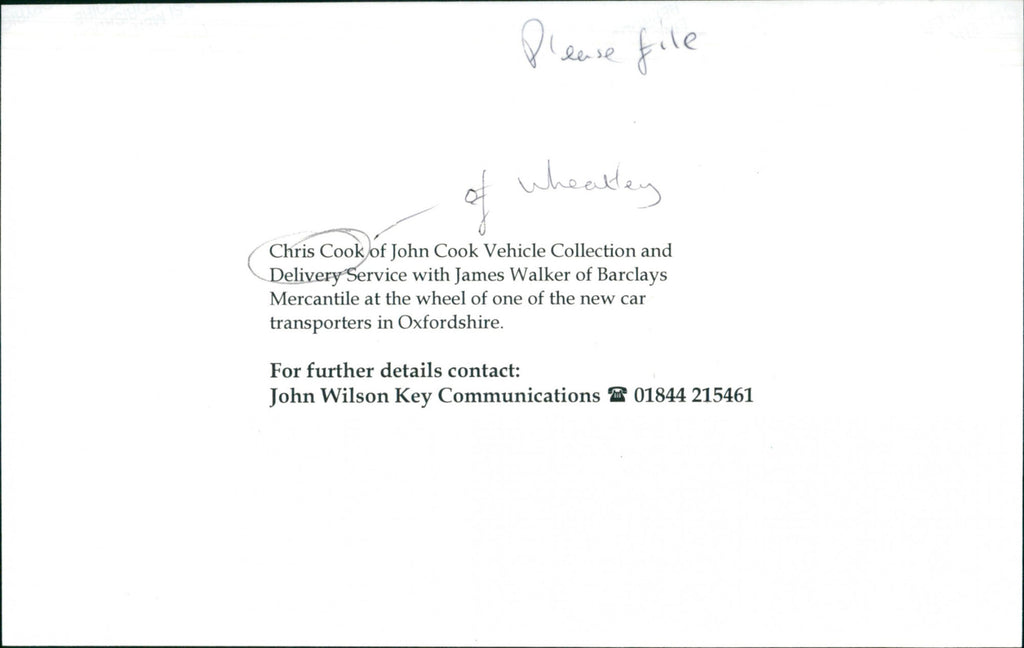 Please file
of Wheatley
Chris Cook of John Cook Vehicle Collection and
Delivery Service with James Walker of Barclays
Mercantile at the wheel of one of the new car
transporters in Oxfordshire.
For further details contact:
John Wilson Key Communications ☎ 01844 215461